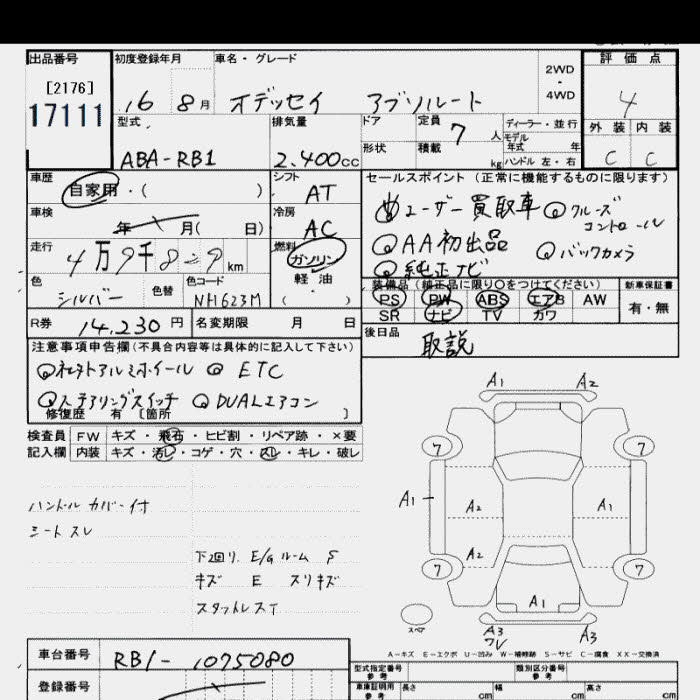 出品番号 初度登録年月 車名・グレード 2WD・4WD 評価点
[2176]
17111 16 8月 オデッセイ アブソルート 4
型式 排気量 ドア 定員 7人 ディーラー・並行 外装 内装
モデル年式 年
ABA-RB1 2.400cc 形状 積載 kg ハンドル 左・右 C C
車歴 自家用・( ) シフト AT セールスポイント(正常に機能するものに限ります)
ユーザー買取車 クルーズコントロール
車検 年 月( 日) 冷房 AC AA初出品 バックカメラ
走行 4万9千829km 燃料 ガソリン 純正ナビ
軽油 ( )
色 シルバー 色替 色コード NH623M
装備品(純正品に限り○をつけてください) 新車保証書
PS PW ABS エアB AW 有・無
SR ナビ TV カワ
R券 14,230円 名変期限 月 日 後日品 取説
注意事項申告欄(不具合内容等は具体的に記入して下さい)
ETC
ステアリングスイッチ DUALエアコン
修復歴 有 [箇所 ]
検査員記入欄 FW キズ・飛石・ヒビ割・リペア跡・×要
内装 キズ・汚レ・コゲ・穴・スレ・キレ・破レ
ハンドルカバー付
シートスレ
下2回リ. E/Gルーム S
キズ E スリキズ
スタットレスT
A1 A2
7 7
A1 A2 A1
A2
7 7
A1
スペア A3 ワレ A3
A-キズ E-エクボ U-凹み W-補修跡 S-サビ C-腐食 XX-交換済
車台番号 RB1-1075080 型式指定番号 参考 類別区分番号 参考
登録番号 車庫証明用 参考 長さ cm 幅 cm 高さ cm